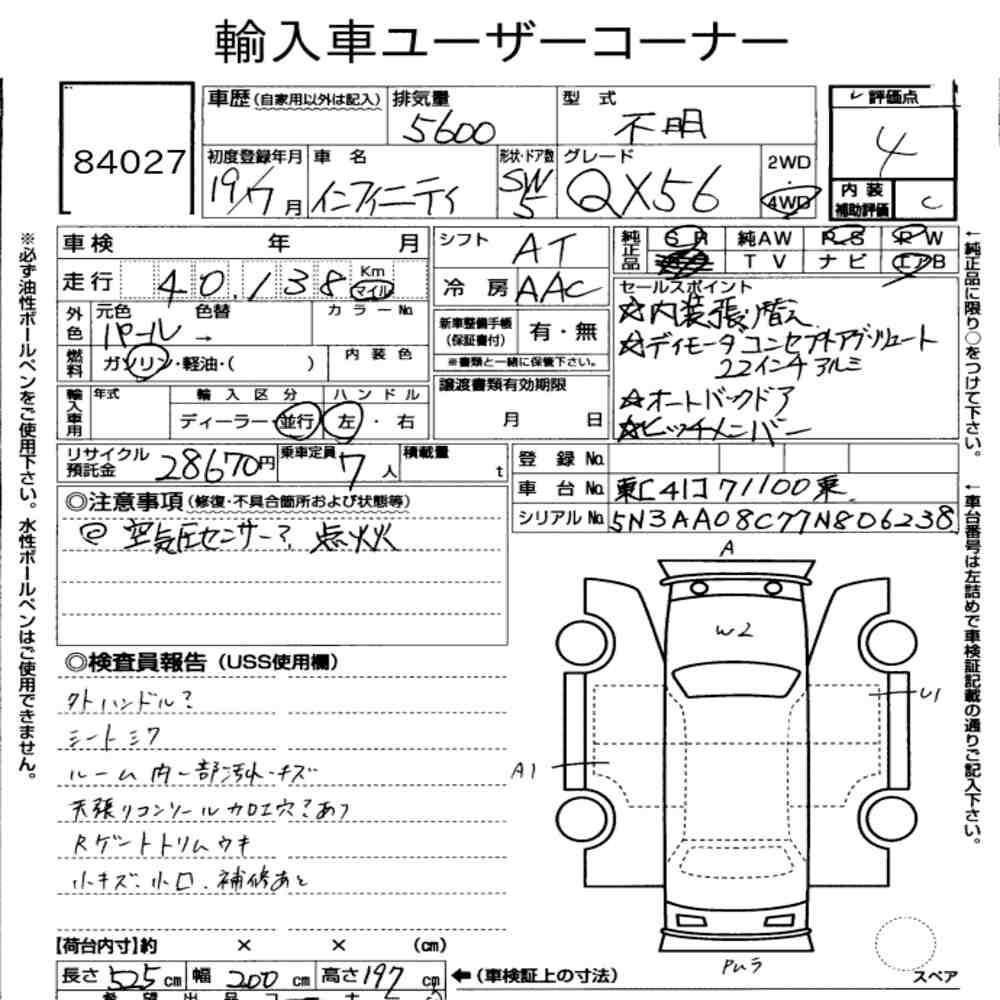 輸入車ユーザーコーナー
84027
車歴 (自家用以外は記入) 排気量 5600 型式 不明
レ 評価点 4
初度登録年月 19/7月 車名 インフィニティ 形状・ドア数 SW 5 グレード QX56 2WD ・ 4WD
内装補助評価 C
車検 年 月 シフト AT 純正品 SR 純AW PS PW
走行 40,138 Km マイル 冷房 AAC TV ナビ エアB
外色 元色 パール 色替 → カラーNo.
新車整備手帳 (保証書付) 有・無
※書類と一緒に保管下さい。
燃料 ガソリン・軽油・( ) 内装色
セールスポイント
☆内装張り替え
☆ディモーダコンセプトアブソリュート
22インチアルミ
☆オートバックドア
☆ヒッチメンバー
譲渡書類有効期限 月 日
輸入車用 年式 輸入区分 ハンドル
ディーラー・並行 左・右
リサイクル預託金 28670円 乗車定員 7人 積載量 t
登録No.
車台No. 東[41]71100東
シリアルNo. 5N3AA08C77N806238
◎注意事項 (修復・不具合箇所および状態等)
◎ 空気圧センサー?点灯
◎検査員報告 (USS使用欄)
外ハンドル?
シートシワ
ルーム内一部汚れ・キズ
天張リコンソール加工穴?あり
Rゲートトリムウキ
小キズ、小凹、補修あと
A
W2
U1
A1
PUラ
スペア
【荷台内寸】約 × × (cm)
長さ 525 cm 幅 200 cm 高さ 197 cm ←(車検証上の寸法)
※必ず油性ボールペンをご使用下さい。水性ボールペンはご使用できません。
←純正品に限り○をつけて下さい。
←車台番号は左詰めで車検証記載の通りご記入下さい。